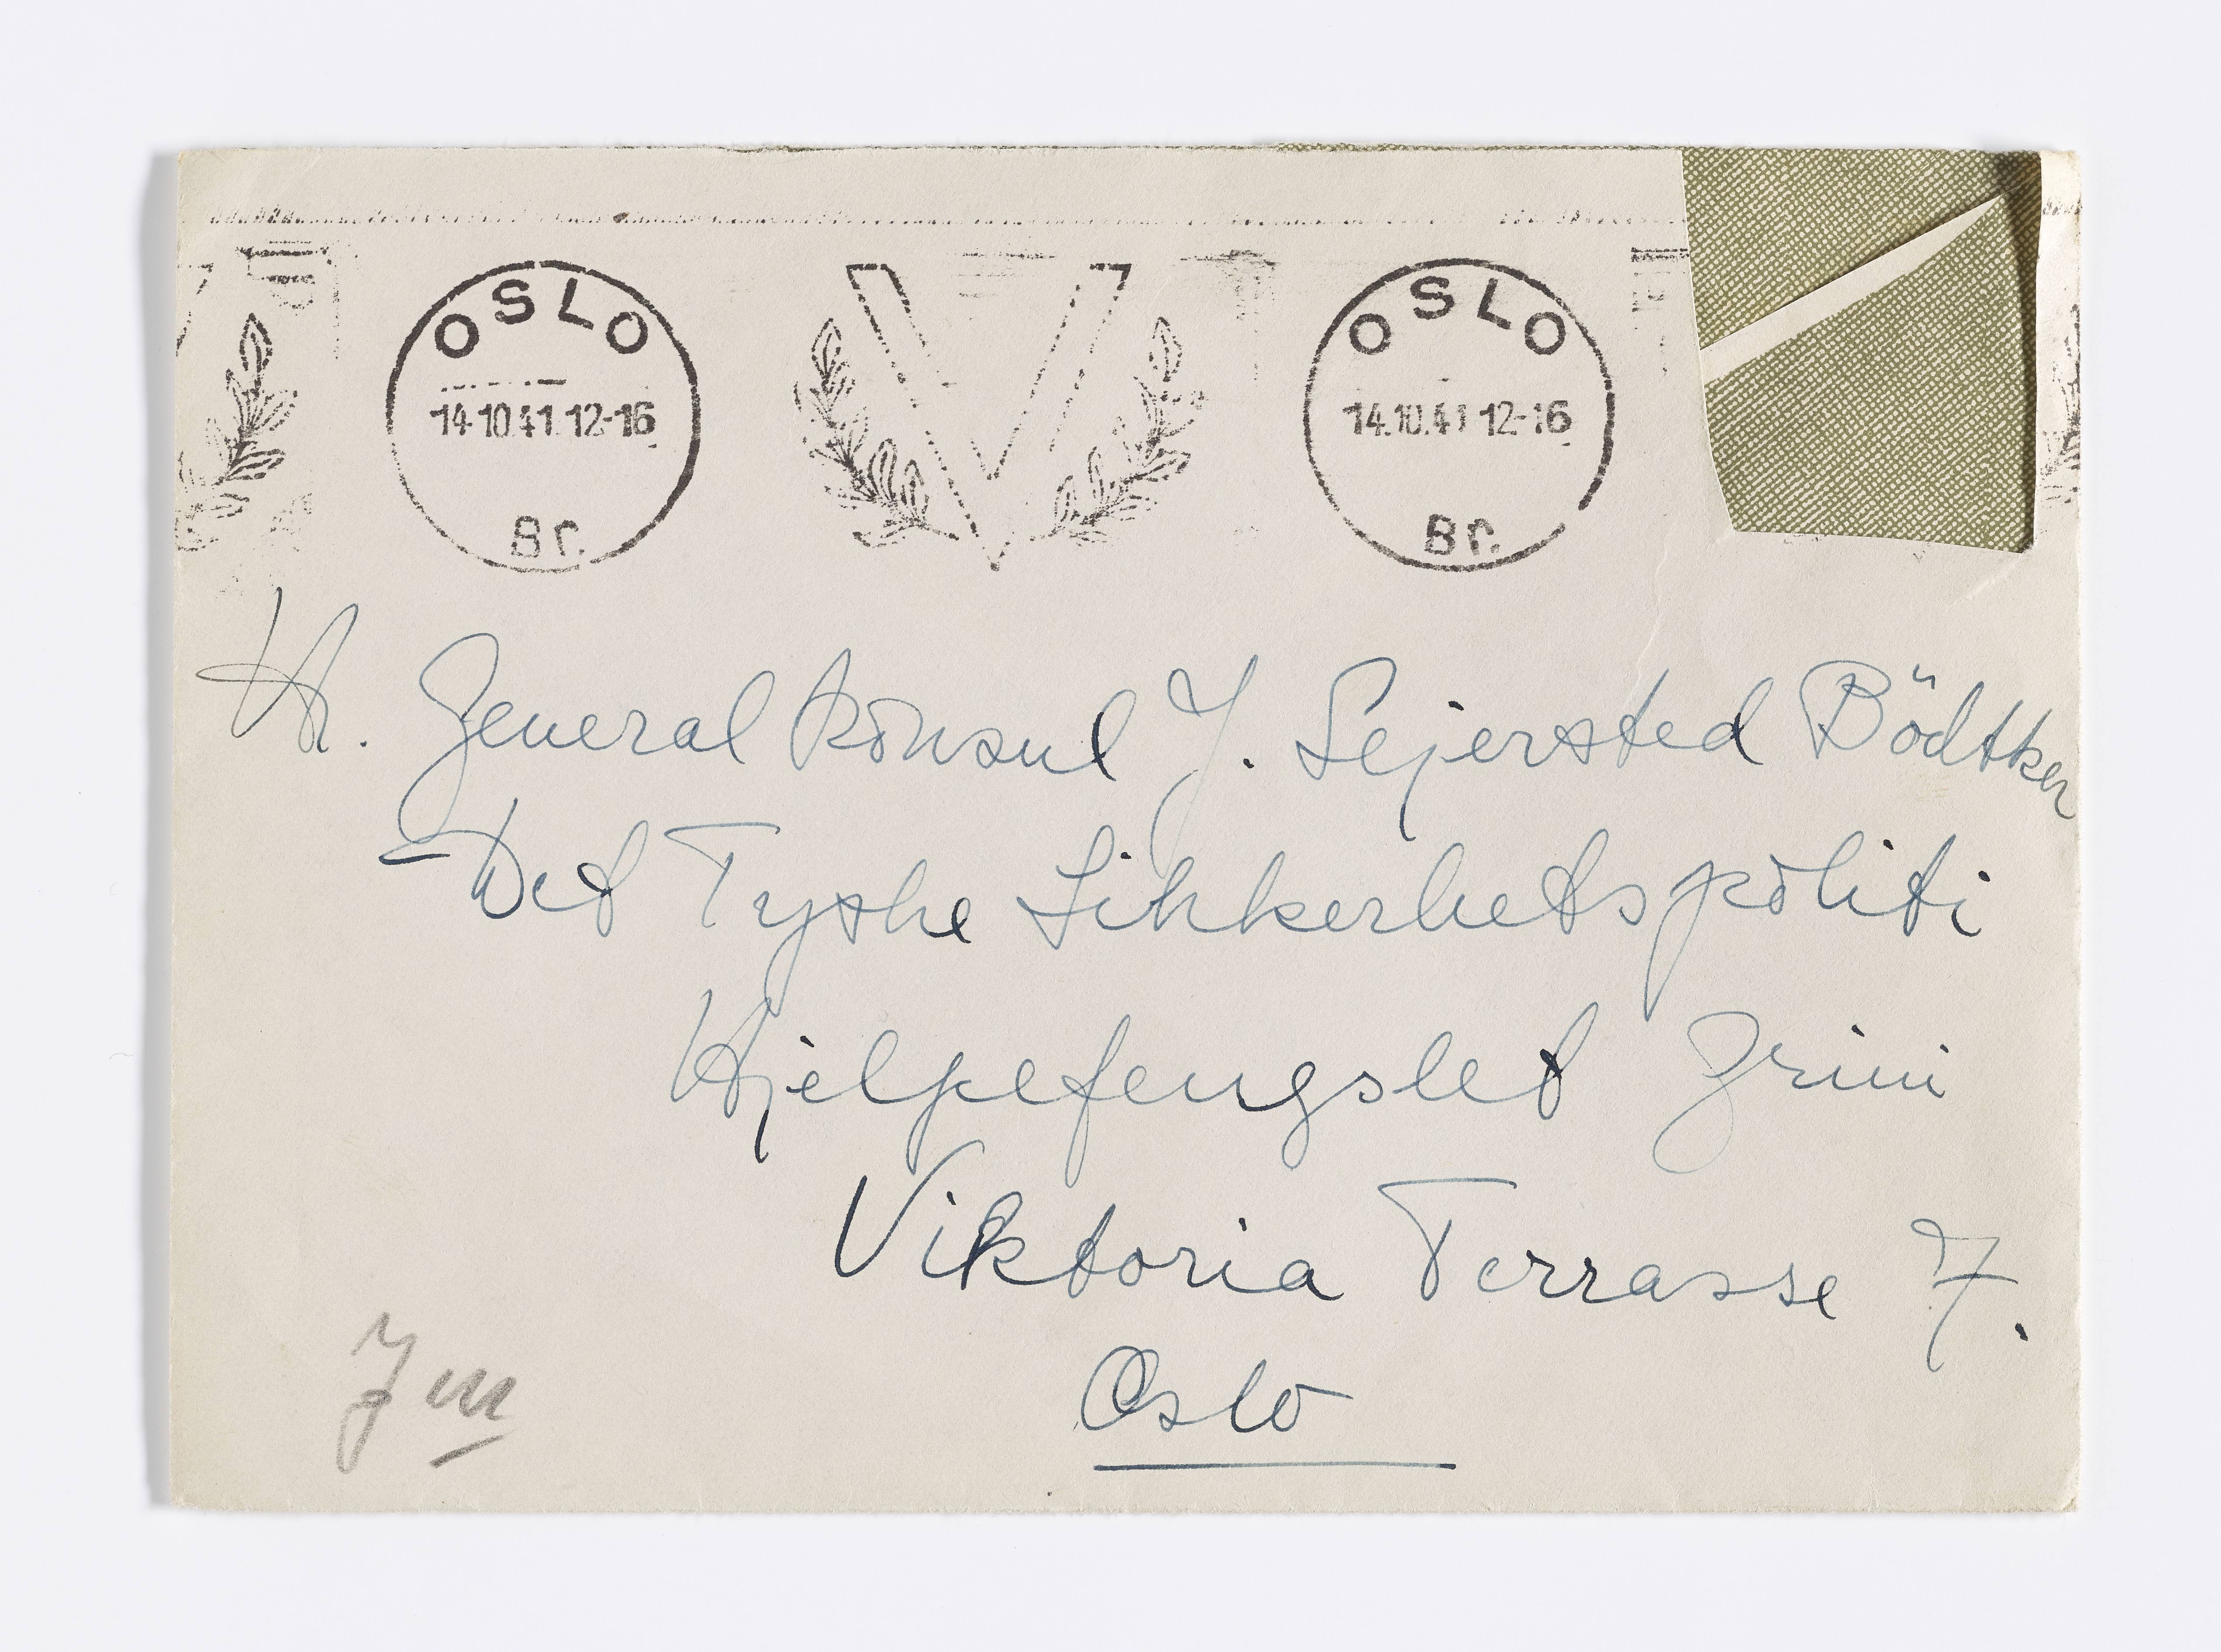 OSLO
14.10.41.12-16
Br.
V
OSLO
14.10.41 12-16
Br.
Hr. General konsul J. Sejersted Bödtker
Det Tyske Sikkerhetspoliti
Hjelpefengslet Grini
Viktoria Terrasse 7.
Oslo